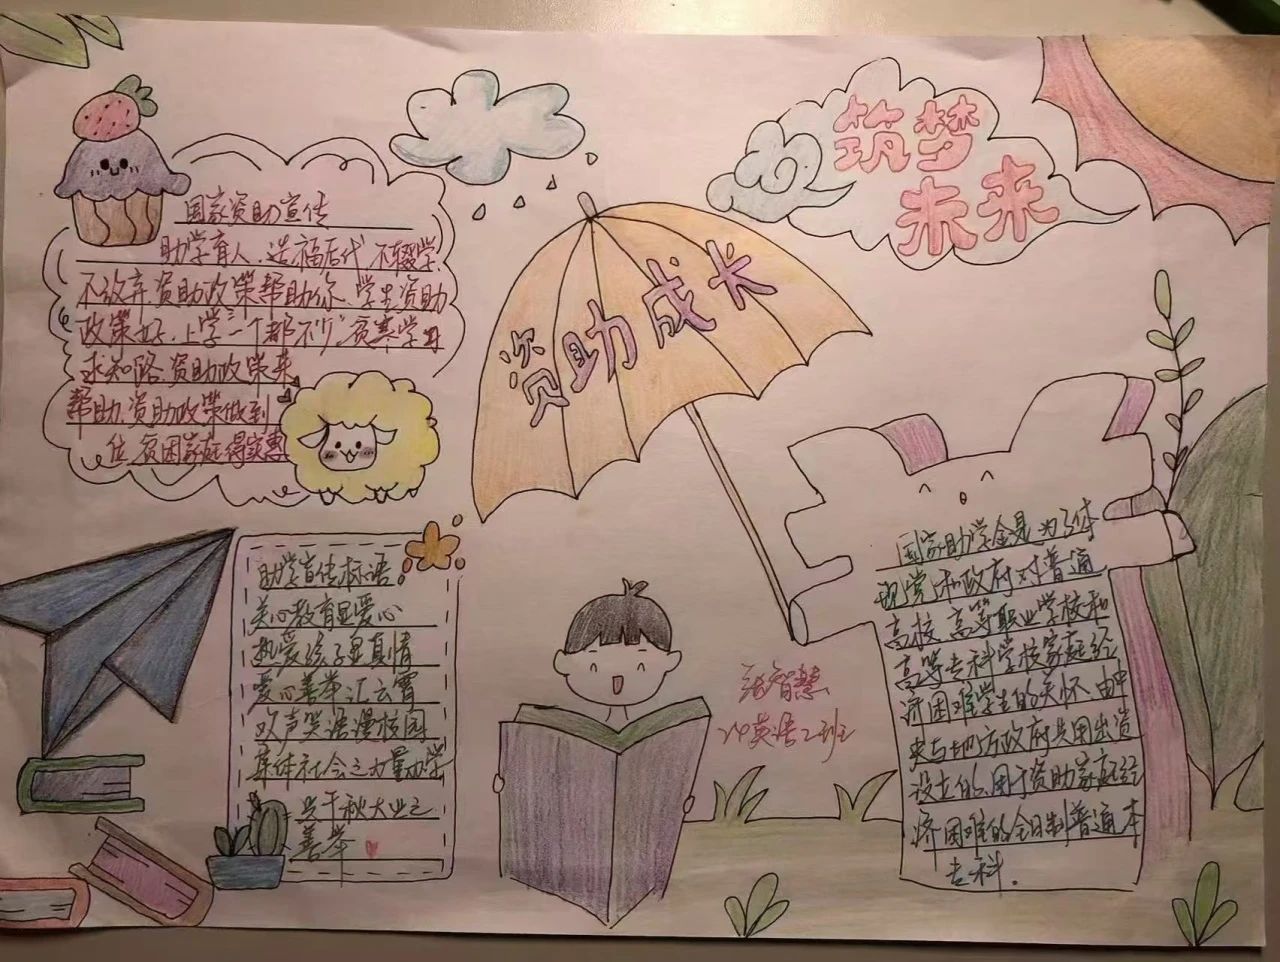 筑梦
未来
资助成长
国家资助宣传
助学育人,造福后代 不辍学,
不放弃 资助政策帮助你、学生资助
政策好,上学一个都不少"贫寒学子
求知路,资助政策来
帮助,资助政策做到
位 贫困家庭得实惠
助学宣传标语
关心教育显爱心
热爱孩子显真情
爱心善举汇云霄
欢声笑语漫校园
集体社会之力量助学
兴千秋大业之
善举
张智慧
24英语2班
国家助学金是为了体
现党和政府对普通
高校、高等职业学校和
高等专科学校家庭经
济困难学生的关怀,由中
央与地方政府共同出资
设立的、用于资助家庭经
济困难的全日制普通本
专科.